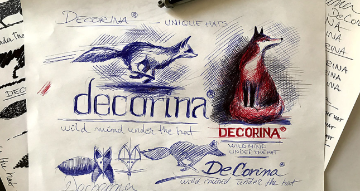 DECORINA® - UNIQUE HATS
decorina®
wild mind under the hat
DECORINA®
WILD MIND
UNDER THE HAT
DeCorina®
wild mind under the hat
Decorina
DECORINA
DECORINA
DECORINA